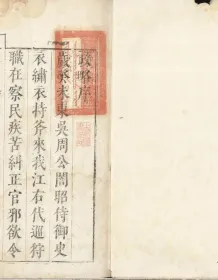 政略序
歲癸未東吳周公闇昭侍御史
衣繡衣持斧來我江右代巡狩
職在察民疾苦糾正官邪欲令